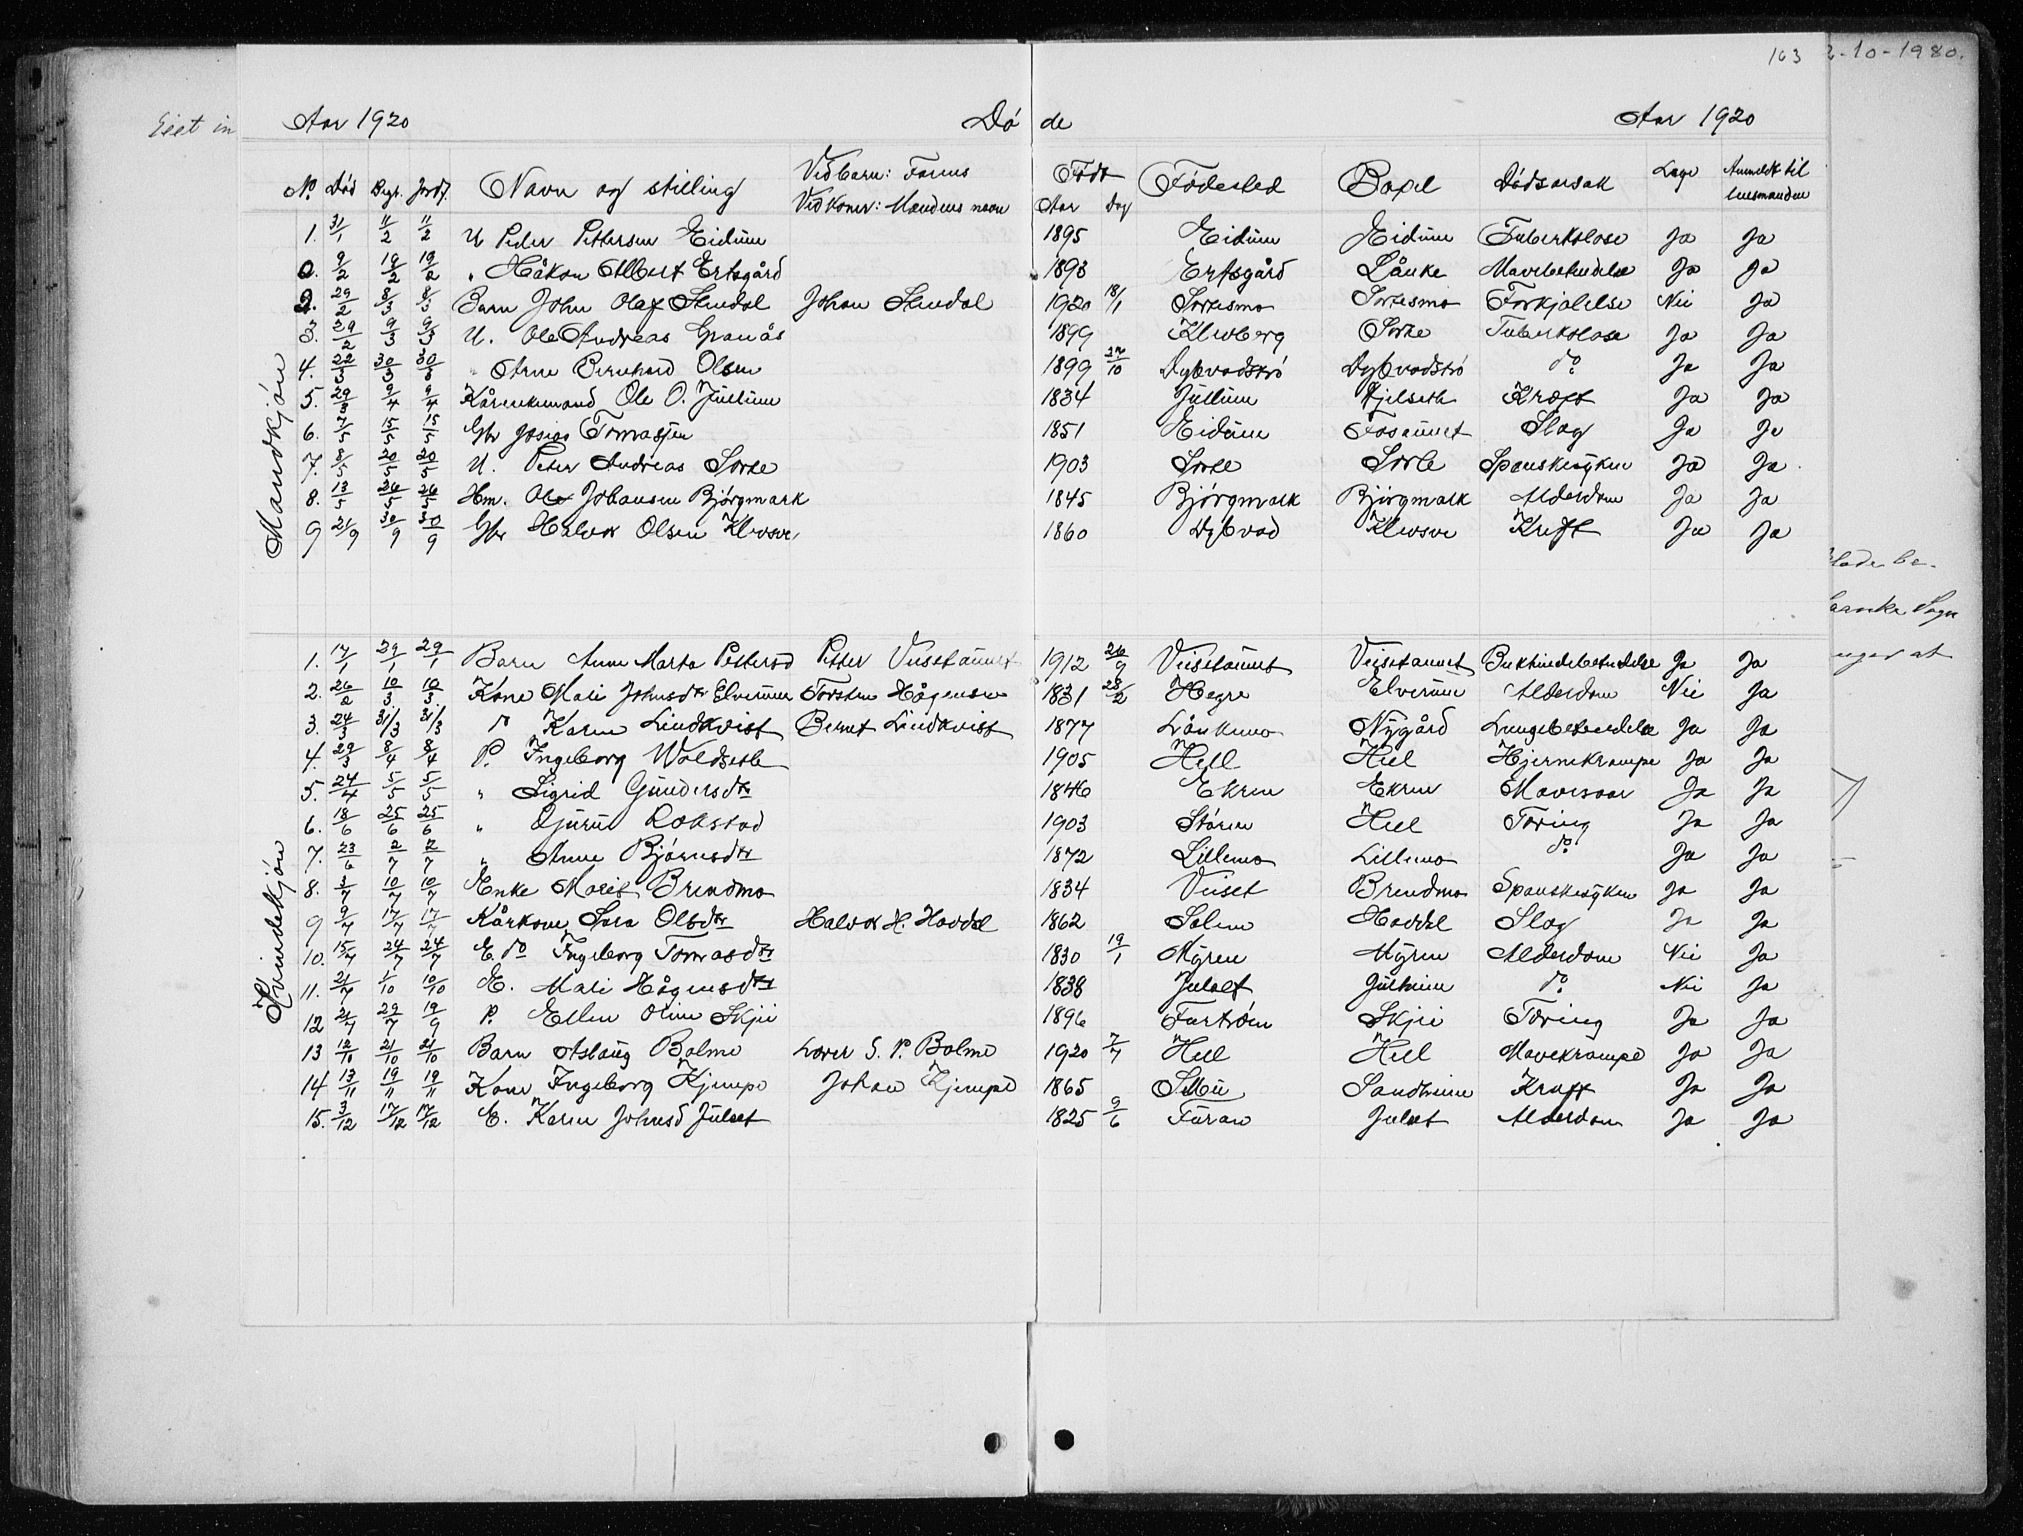 163
2-10-1980.
Aar 1920 Dø de Aar 1920
No Død Begr. Jordf. Navn og stilling Ved barn: Farens Ved koner: Mandens navn Født Aar Dag Fødested Bopel Dødsaarsak Læge Anmeldt til lensmanden
Mandkjøn
1. 31/1 11/2 11/2 U Peder Pettersen Eidum 1895 Eidum Eidum Tuberkolose Ja Ja
0. 9/2 19/2 19/2 " Håkon Albert Ertsgård 1893 Ertsgård Lånke Mavebetendelse Ja Ja
2. 29/2 8/3 8/3 Barn John Olaf Stendal Johan Stendal 1920 18/1 Sortesmo Sortesmo Forkjølelse Nei Ja
3. 29/2 9/3 9/3 U. Ole Andreas Granås 1899 Klevberg Sorte Tuberkolose Ja Ja
4. 22/3 30/3 30/3 " Arne Bernhard Olsen 1899 27/10 Dybvadstrø Dybvadstrø do Ja Ja
5. 29/3 9/4 9/4 Kårenkemand Ole O. Jullum 1834 Jullum Hjelseth Kræft Ja Ja
6. 7/5 15/5 15/5 Gbr Josias Tomasjen 1851 Eidum Fosaunet Slag Ja Ja
7. 8/5 20/5 20/5 U. Peter Andreas Sorte 1903 Sorte Sorte Spanskesyken Ja Ja
8. 13/5 26/5 26/5 Hm. Ole Johansen Bjørgmark 1845 Bjørgmark Bjørgmark Alderdom Ja Ja
9 21/9 30/9 30/9 Gbr Halvor Olsen Klevsve 1860 Dybvad Klevsve Kreft Ja Ja
Kvindekjøn
1. 17/1 29/1 29/1 Barn Anne Marta Pettersd Petter Veisetaunet 1912 26/9 Veisetaunet Veisetaunet Bukhindebetendelse Ja Ja
2. 26/2 10/3 10/3 Kone Mali Johnsdtr Elverum Torsten Hågensen 1831 23/2 Hegre Elverum Alderdom Nei Ja
3. 24/3 31/3 31/3 do Karen Lindkvist Bernt Lindkvist 1877 Lånkemo Nygård Lungebetendelse Ja Ja
4. 29/3 8/4 8/4 P. Ingeborg Woldseth 1905 Hell Hell Hjernekrampe Ja Ja
5. 24/4 5/5 5/5 " Sigrid Gundersdtr 1846 Ekren Ekren Mavesaar Ja Ja
6. 18/6 25/6 25/6 " Gjurun Rokstad 1903 Støren Hell Tæring Ja Ja
7. 23/6 2/7 2/7 " Anne Bjørnsdtr 1872 Lillemo Lillemo do Ja Ja
8. 3/7 10/7 10/7 Enke Marit Brendmo 1834 Veiset Brendmo Spanskesyken Ja Ja
9 9/7 17/7 17/7 Kårkone Sara Olsdtr Halvor H. Hoddel 1862 Solem Hoddel Slag Ja Ja
10. 15/7 24/7 24/7 E. do Ingeborg Tomasdtr 1830 19/1 Myren Myren Alderdom Nei Ja
11. 21/7 1/10 10/10 E. Mali Hågensdtr 1838 Julset Jullum do Nei Ja
12 21/7 29/7 19/9 P. Ellen Oline Skjei 1896 Furtrøen Skjei Tæring Ja Ja
13 12/10 21/10 21/10 Barn Aslaug Bolme Lærer S. P. Bolme 1920 7/7 Hell Hell Mavekrampe Ja Ja
14 13/11 19/11 19/11 Kone Ingeborg Kjempe Johan Kjempe 1865 Selbu Sandheim Kræft Ja Ja
15. 3/12 17/12 17/12 E. Karen Johnsd Julset 1825 9/6 Furan Julset Alderdom Ja Ja